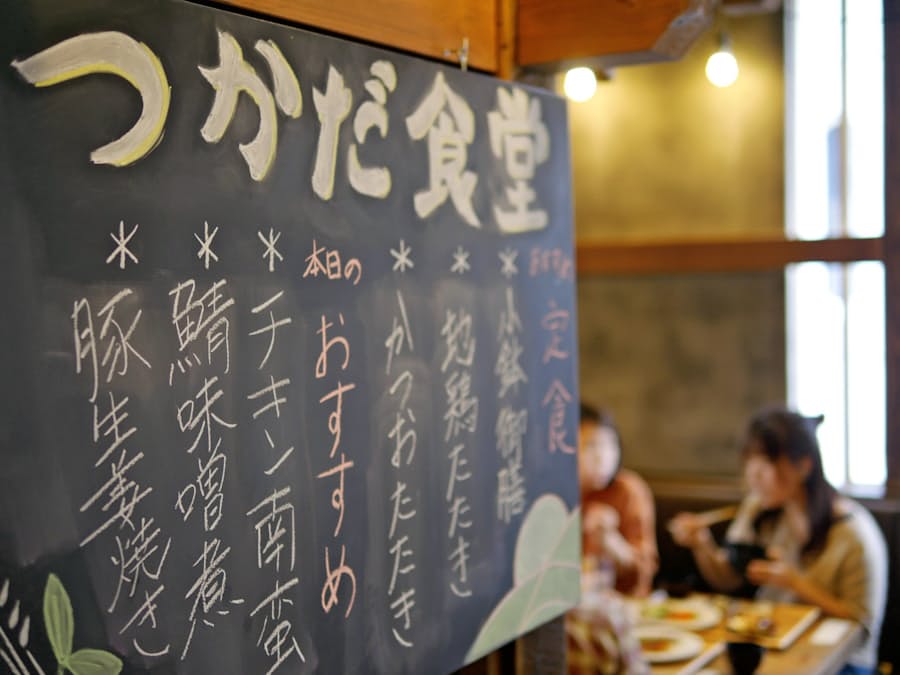 つかだ食堂
定食
*小鉢御膳
*地鶏たたき
*かつおたたき
本日の
おすすめ
*チキン南蛮
*鯖味噌煮
*豚生姜焼き